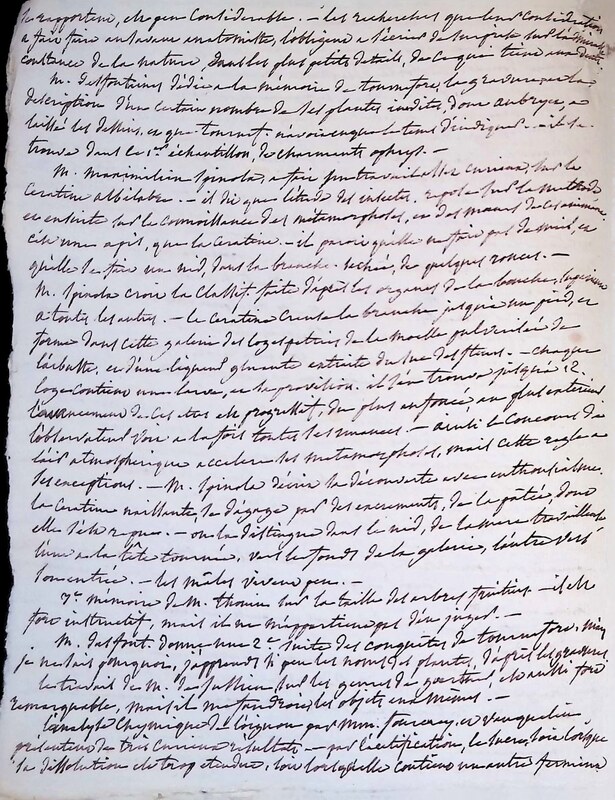 rapporteur, est peu considerable. — les recherches que leur consideration
a fait faire au savant anatomiste, l'obligent a s'écrier de surprise sur la
constance de la nature, dans les plus petits details, de ce qui tient aux
M. desfontaines dédie a la mémoire de tournefort, la gravure, et la
description d'un certain nombre de ses plantes inedites, dont aubryet, a
laissé les dessins, et que tournef. n'avoit eu que le tems d'indiquer. — il se
trouve dans le 1er échantillon, de charmants ophrys. —
M. maximilien Spinola, a fait un travail assez curieux, sur le
ceratine albilabre. — il dit que l'étude des insectes, repose sur la methode
et ensuite sur la connoissance des métamorphoses, et des mœurs de ces animaux
cite une apis, que la ceratine. — il paroit qu'elle ne fait pas de miel, et
qu'elle se fait un nid, dans la branche sechée, de quelques ronces. —
M. Spinola croit la classif. faite d'après les organes de la bouche, supérieure
a toutes les autres. — le ceratine creuse la branche jusqu'à un pied, et
forme dans cette galerie des loges petries de la moelle pulverisée de
l'arbuste, et d'une liqueur gluante extraite du suc des fleurs. — chaque
loge contient une larve, et sa provision. il s'en trouve jusqu'à 12.
l'avancement de ces etres est progressif, du plus enfoncé au plus extérieur
l'observateur voit a la fois toutes les nuances. — ainsi le concours de
l'air atmospherique accelere les metamorphoses, mais cette regle a
ses exceptions. — M. Spinola décrit sa découverte avec enthousiasme,
la ceratine naissante, se dégage par des excrements, de la pâtée dont
elle s'est repue. — on la distingue dans le nid, de la mere travaillante
l'une a la tête tournée, vers le fonds de la galerie, l'autre vers
son entrée. — les mâles vivent peu. —
7e mémoire de M. thouin sur la taille des arbres fruitiers. — il est
fort instructif, mais il ne m'appartient pas d'en juger. —
M. desfont. donne une 2e suite des conquêtes de tournefort, mais
je ne sais pourquoi, j'apprends si peu les noms des plantes, d'après les gravures
le travail de M. de Jussieu, sur les genres de gaertner, est aussi fort
remarquable, mais il me faudroit les objets eux mêmes. —
l'analyse chymique de l'oignon par MM. fourcroy, et vauquelin
présente de tres curieux resultats — par l'acetification, le sucre, soit lorsque
sa dissolution est trop etendue, soit lorsqu'elle contient un autre ferment